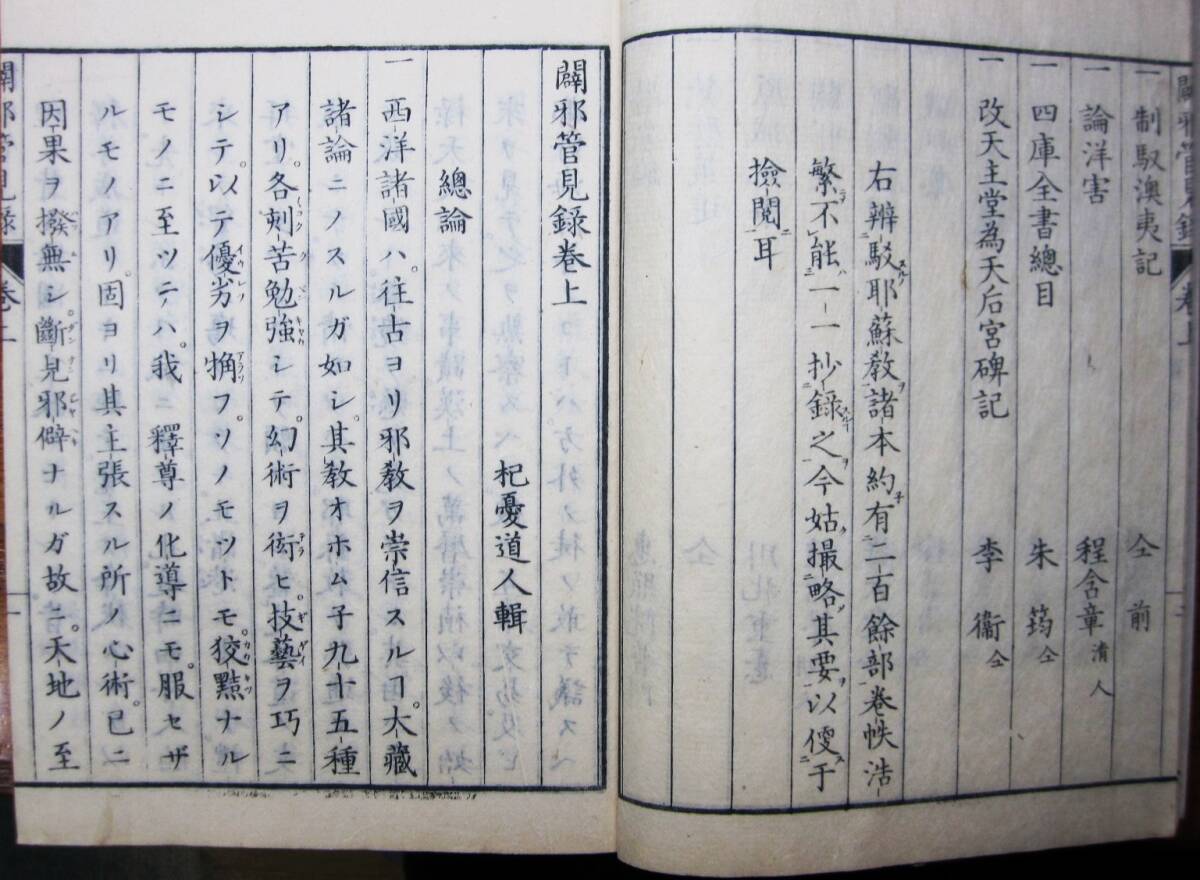 一 制馭澳夷記 仝 前
一 論洋害 程含章 清人
一 四庫全書總目 朱筠 仝
一 改天主堂為天后宮碑記 李衞 仝
右辨駁耶蘇教諸本約有二百餘部卷帙浩
繁不能一一抄錄之今姑撮略其要以便于
撿閱耳
闢邪管見錄 卷上
闢邪管見錄卷上
杞憂道人輯
總論
一 西洋諸國ハ。往古ヨリ邪教ヲ崇信スルヿ。大藏
諸論ニノスルガ如シ。其教オホム子九十五種
アリ。各刻苦勉強シテ。幻術ヲ衒ヒ技藝ヲ巧ニ
シテ。以テ優劣ヲ角フ。ソノモツトモ狡黠ナル
モノニ至ツテハ。我 釋尊ノ化導ニモ。服セザ
ルモノアリ。固ヨリ其主張スル所ノ心術。已ニ
因果ヲ撥無シ。斷見邪僻ナルガ故ニ。天地ノ至
闢邪管見錄 卷上